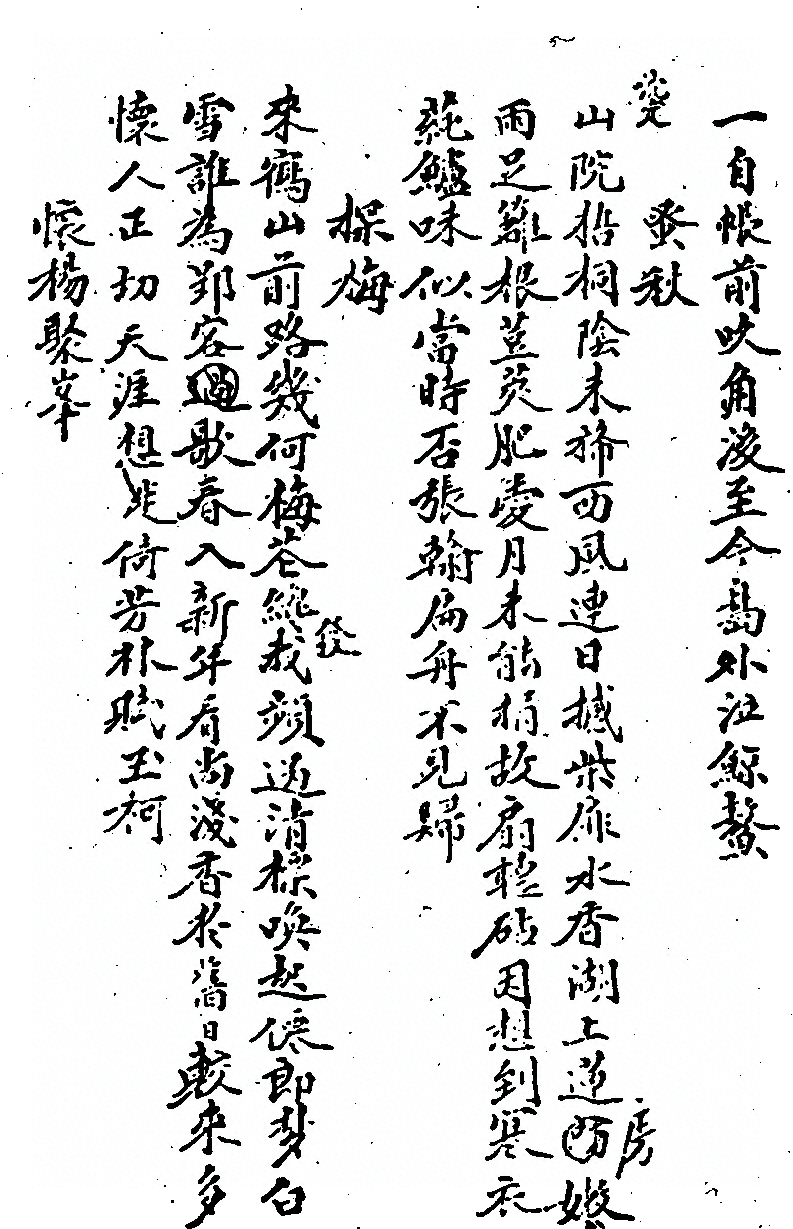 一自帳前吹角後至今島外泣鯨鰲
蚤秋
山院梧桐陰未稀西風連日撼柴扉水香湖上蓮房嫩
雨足籬根荳莢肥愛月未能捐故扇聽砧因想到寒衣
蒓鱸味似當時否張翰扁舟不見歸
探梅
來鶴山前路幾何梅花繞發頻過清標喚起僊郎夢白
雪誰為郢客歌春入新年看尚淺香於舊日較來多
懷人正切天涯想先倚芳林賦玉柯
懷楊聚峯